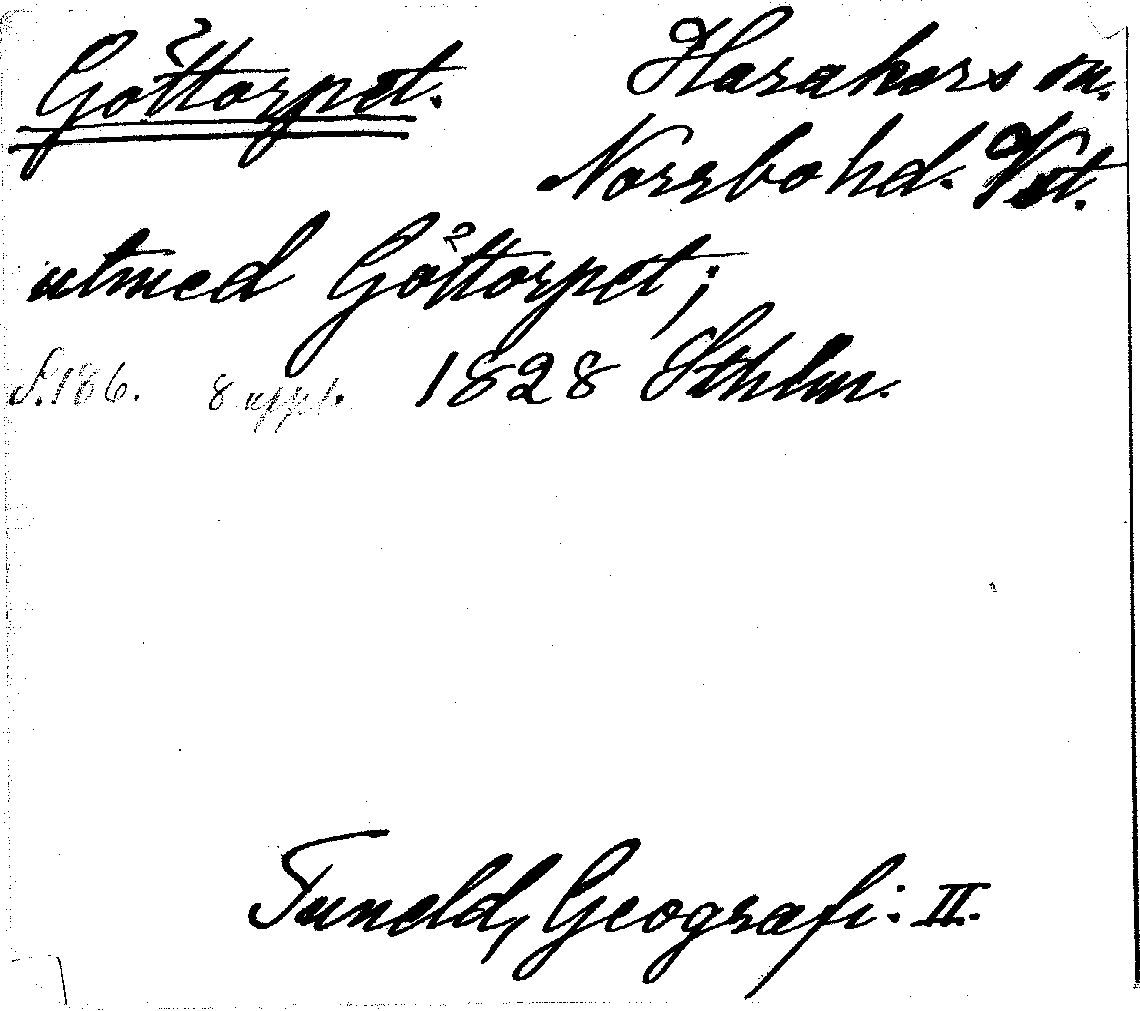 Göttorpet. Harakers sn.
Norrbo hd. Vst.
utmed Göttorpet;
S. 186. 8 uppl. 1828 Sthlm.
Tuneld, Geografi: II.